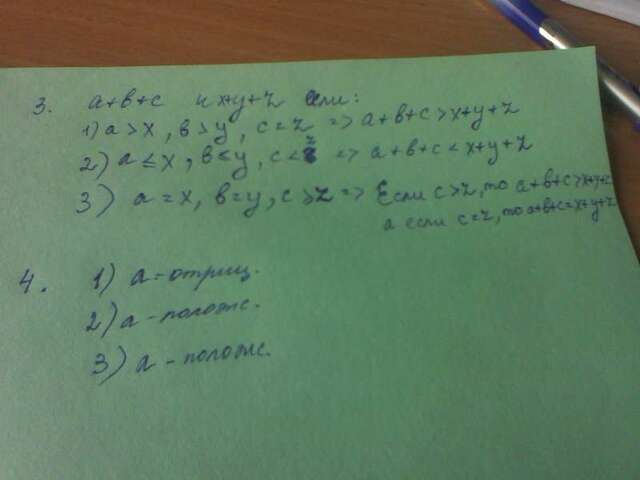 3. a+b+c и x+y+z если:
1) a>x, b>y, c=z => a+b+c>x+y+z
2) a≤x, b≤y, c<z => a+b+c<x+y+z
3) a=x, b=y, c≥z => Если c>z, то a+b+c>x+y+z
а если c=z, то a+b+c=x+y+z
4. 1) a-отриц.
2) a-полож.
3) a-полож.